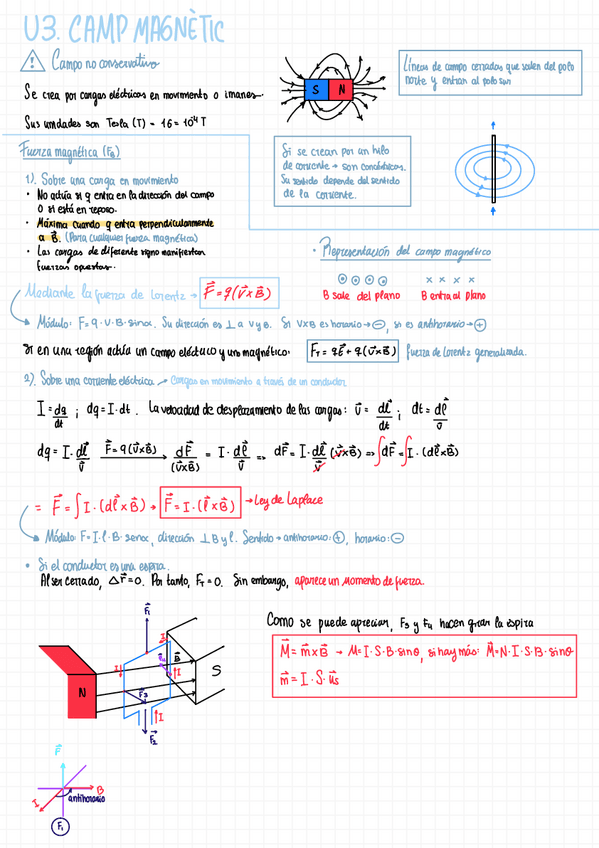 U3. CAMP MAGNÈTIC
! Campo no conservativo
Se crea por cargas eléctricas en movimiento o imanes.
Sus unidades son Tesla (T) - 1G = 10⁻⁴ T
S N
Líneas de campo cerradas que salen del polo
norte y entran al polo sur
Fuerza magnética (FB)
1). Sobre una carga en movimiento
• No actúa si q entra en la dirección del campo
o si está en reposo.
• Máxima cuando q entra perpendicularmente
a B⃗. (Para cualquier fuerza magnética)
• Las cargas de diferente signo manifiestan
fuerzas opuestas.
Si se crean por un hilo
de corriente → son concéntricas.
Su sentido depende del sentido
de la corriente.
• Representación del campo magnético
⊙ ⊙ ⊙ ⊙ × × × ×
B sale del plano B entra al plano
Mediante la fuerza de Lorentz → F⃗ = q(v⃗×B⃗)
Módulo: F = q·v·B·sinα. Su dirección es ⊥ a v y B. Si v×B es horario → ⊖, si es antihorario → ⊕
Si en una región actúa un campo eléctrico y uno magnético: FT = qE⃗ + q(v⃗×B⃗) fuerza de Lorentz generalizada.
2). Sobre una corriente eléctrica → Cargas en movimiento a través de un conductor
I = dq/dt ; dq = I·dt. La velocidad de desplazamiento de las cargas: v⃗ = dl⃗/dt ; dt = dl⃗/v⃗
dq = I·dl⃗/v⃗ F⃗ = q(v⃗×B⃗) → dF⃗/(v⃗×B⃗) = I·dl⃗/v⃗ => dF⃗ = I·dl⃗/v⃗ (v⃗×B⃗) => ∫dF⃗ = ∫I·(dl⃗×B⃗)
= F⃗ = ∫I·(dl⃗×B⃗) → F⃗ = I·(l⃗×B⃗) → Ley de Laplace
Módulo: F = I·l·B·senα, dirección ⊥ B y l. Sentido → antihorario: ⊕, horario: ⊖
• Si el conductor es una espira.
Al ser cerrado, △r⃗ = 0. Por tanto, FT = 0. Sin embargo, aparece un momento de fuerza.
F⃗1
I
B⃗
I
I
S
N
F⃗3
I
F⃗2
Como se puede apreciar, F3 y F4 hacen girar la espira
M⃗ = m⃗×B⃗ → M = I·S·B·sinθ, si hay más: M⃗ = N·I·S·B·sinθ
m⃗ = I·S·u⃗s
F⃗
B
I
antihorario
F1